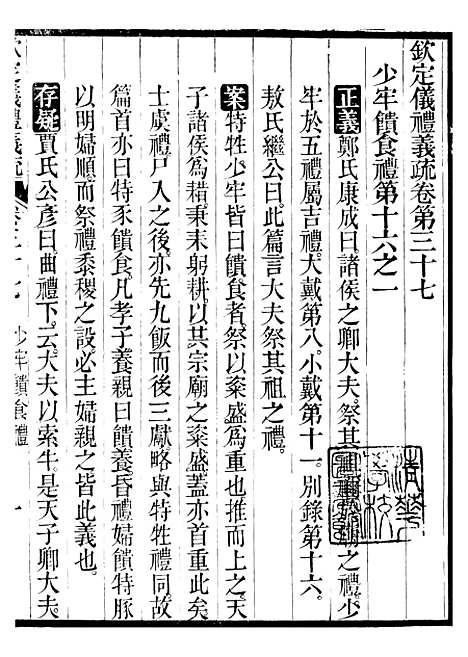 欽定儀禮義疏卷第三十七
少牢饋食禮第十六之一
正義鄭氏康成曰諸侯之卿大夫祭其祖禰於廟之禮少
牢於五禮屬吉禮大戴第八小戴第十一別錄第十六。
敖氏繼公曰此篇言大夫祭其祖之禮。
案特牲少牢皆曰饋食者祭以粢盛爲重也推而上之天
子諸侯爲耤秉耒躬耕以其宗廟之粢盛蓋亦首重此矣
士虞禮尸入之後亦先九飯而後三獻略與特牲禮同故
篇首亦曰特豕饋食凡孝子養親曰饋養昏禮婦饋特豚
以明婦順而祭禮黍稷之設必主婦親之皆此義也。
存疑賈氏公彥曰曲禮下云大夫以索牛是天子卿大夫
欽定儀禮義疏 卷三十七 少牢饋食禮 一
清華學校